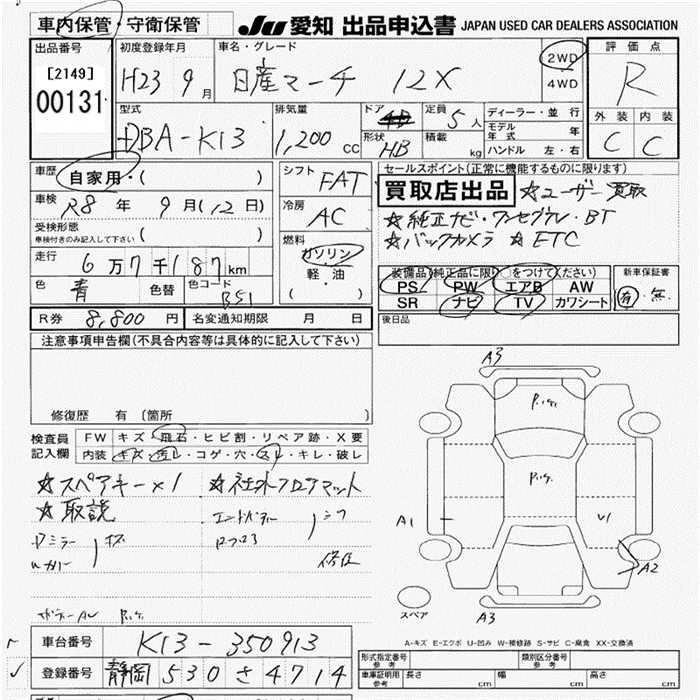 車内保管・守衛保管
JU 愛知 出品申込書 JAPAN USED CAR DEALERS ASSOCIATION
出品番号
[2149]
00131
初度登録年月
H23 9月
車名・グレード
日産マーチ 12X
2WD
4WD
評価点
R
外装 内装
C C
型式
DBA-K13
排気量
1,200 cc
ドア
形状
HB
定員
5人
積載
kg
ディーラー・並行
モデル年式 年
ハンドル 左・右
車歴
自家用・( )
車検
R8年 9月(12日)
受検形態
車検付きのみ記入して下さい ( )
走行
6万7千187km
色
青
色替
色コード
B51
シフト
FAT
冷房
AC
燃料
ガソリン
軽・油
( )
R券 8,800円
名変通知期限 月 日
セールスポイント(正常に機能するものに限ります)
買取店出品 ☆ユーザー買取
☆純正ナビ・ワンセグTV・BT
☆バックカメラ ☆ETC
装備品(純正品に限り○をつけてください)
PS PW エアB AW
SR ナビ TV カワシート
新車保証書
有・無
後日品
注意事項申告欄(不具合内容等は具体的に記入して下さい)
修復歴 有(箇所
検査員記入欄
FW キズ・飛石・ヒビ割・リペア跡・X要
内装 キズ・汚レ・コゲ・穴・スレ・キレ・破レ
☆スペアキー×1 ☆社外フロアマット
☆取説
A3
A1
U1
A2
A3
スペア
A-キズ E-エクボ U-凹み W-補修跡 S-サビ C-腐食 XX-交換済
車台番号 K13-350913
登録番号 静岡 530 さ 4714
形式指定番号 参考
類別区分番号 参考
車庫証明用 参考
長さ cm 幅 cm 高さ cm